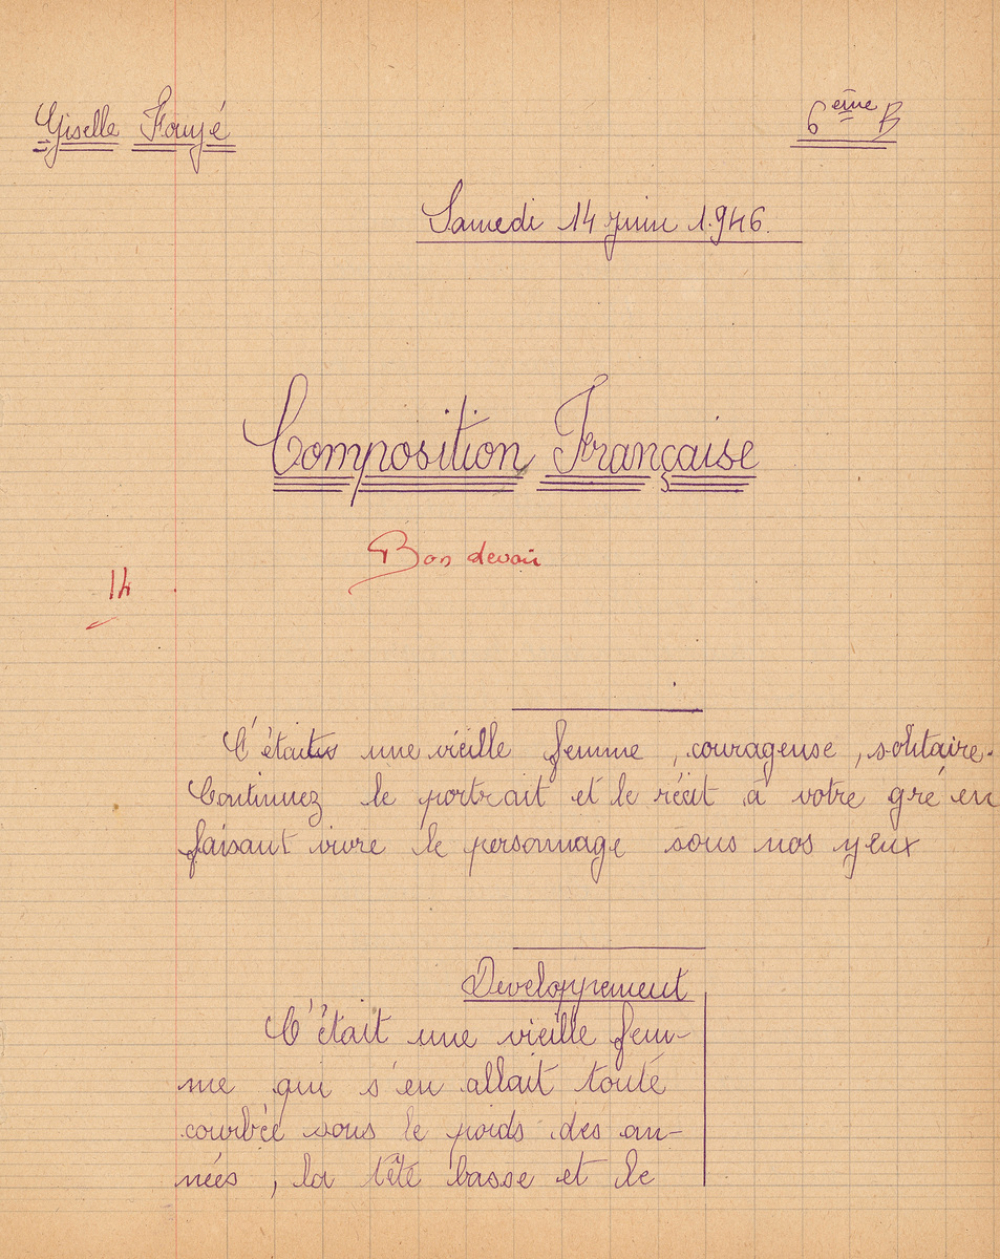 Giselle Fouyé
6ème B
Samedi 14 juin 1.946.
Composition Française
Bon devoir
14
C'était une vieille femme, courageuse, solitaire.
Continuez le portrait et le récit à votre gré en
faisant vivre le personnage sous nos yeux
Developpement
C'était une vieille fem-
me qui s'en allait toute
courbée sous le poids des an-
nées, la tête basse et le